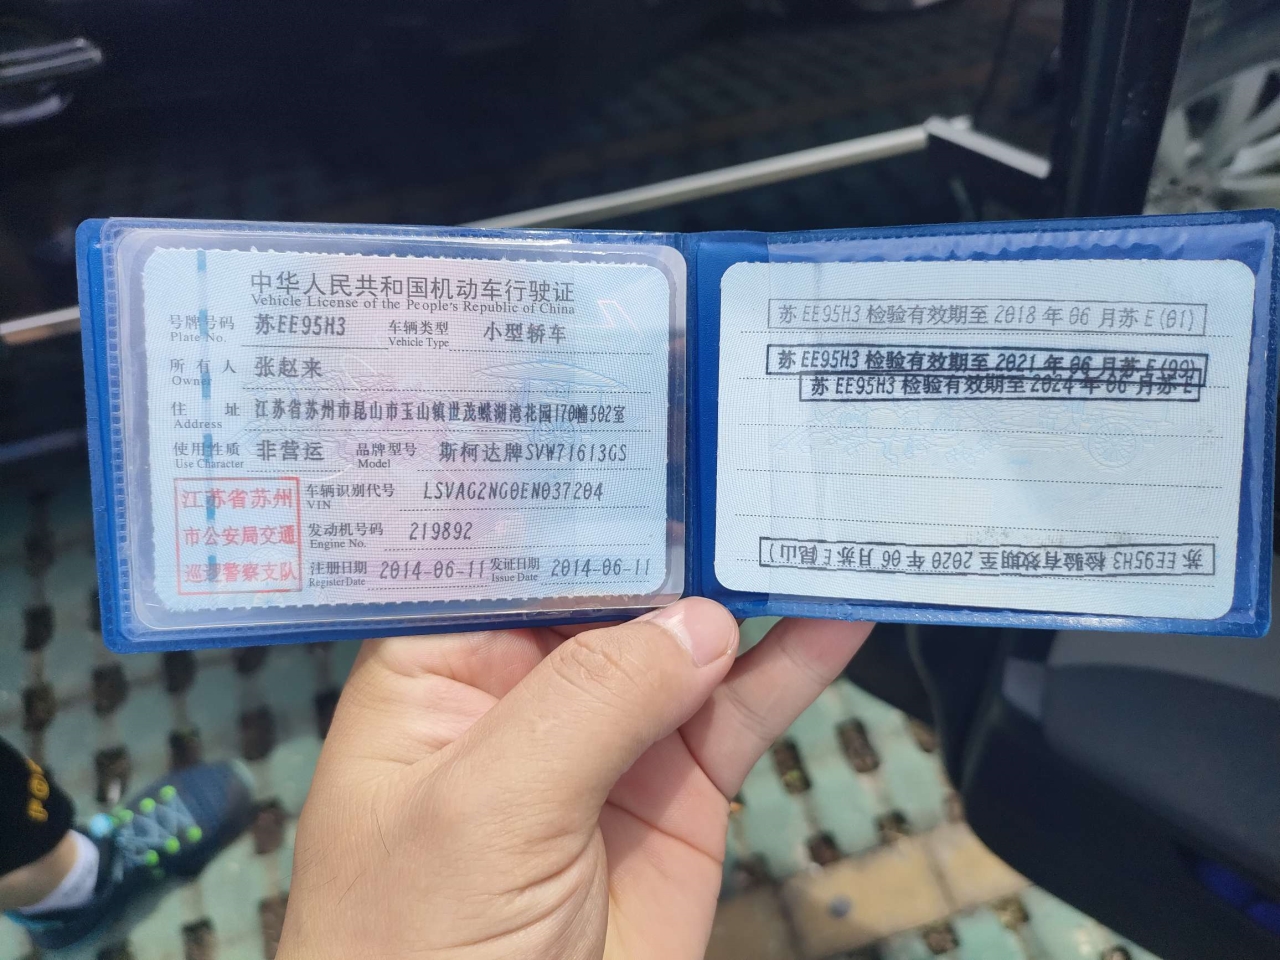 中华人民共和国机动车行驶证
Vehicle License of the People's Republic of China
号牌号码 苏EE95H3 车辆类型 小型轿车
Plate No. Vehicle Type
所有人 张赵来
Owner
住址 江苏省苏州市昆山市玉山镇世茂蝶湖湾花园170幢502室
Address
使用性质 非营运 品牌型号 斯柯达牌SVW71613GS
Use Character Model
江苏省苏州
市公安局交通
巡逻警察支队
车辆识别代号 LSVAG2NG0EN037204
VIN
发动机号码 219892
Engine No.
注册日期 2014-06-11 发证日期 2014-06-11
Register Date Issue Date
苏EE95H3 检验有效期至 2018 年 06 月苏E(01)
苏EE95H3 检验有效期至 2021 年 06 月苏E(99)
苏EE95H3 检验有效期至 2024 年 06 月苏E
苏EE95H3 检验有效期至 2020 年 06 月苏E(昆山)